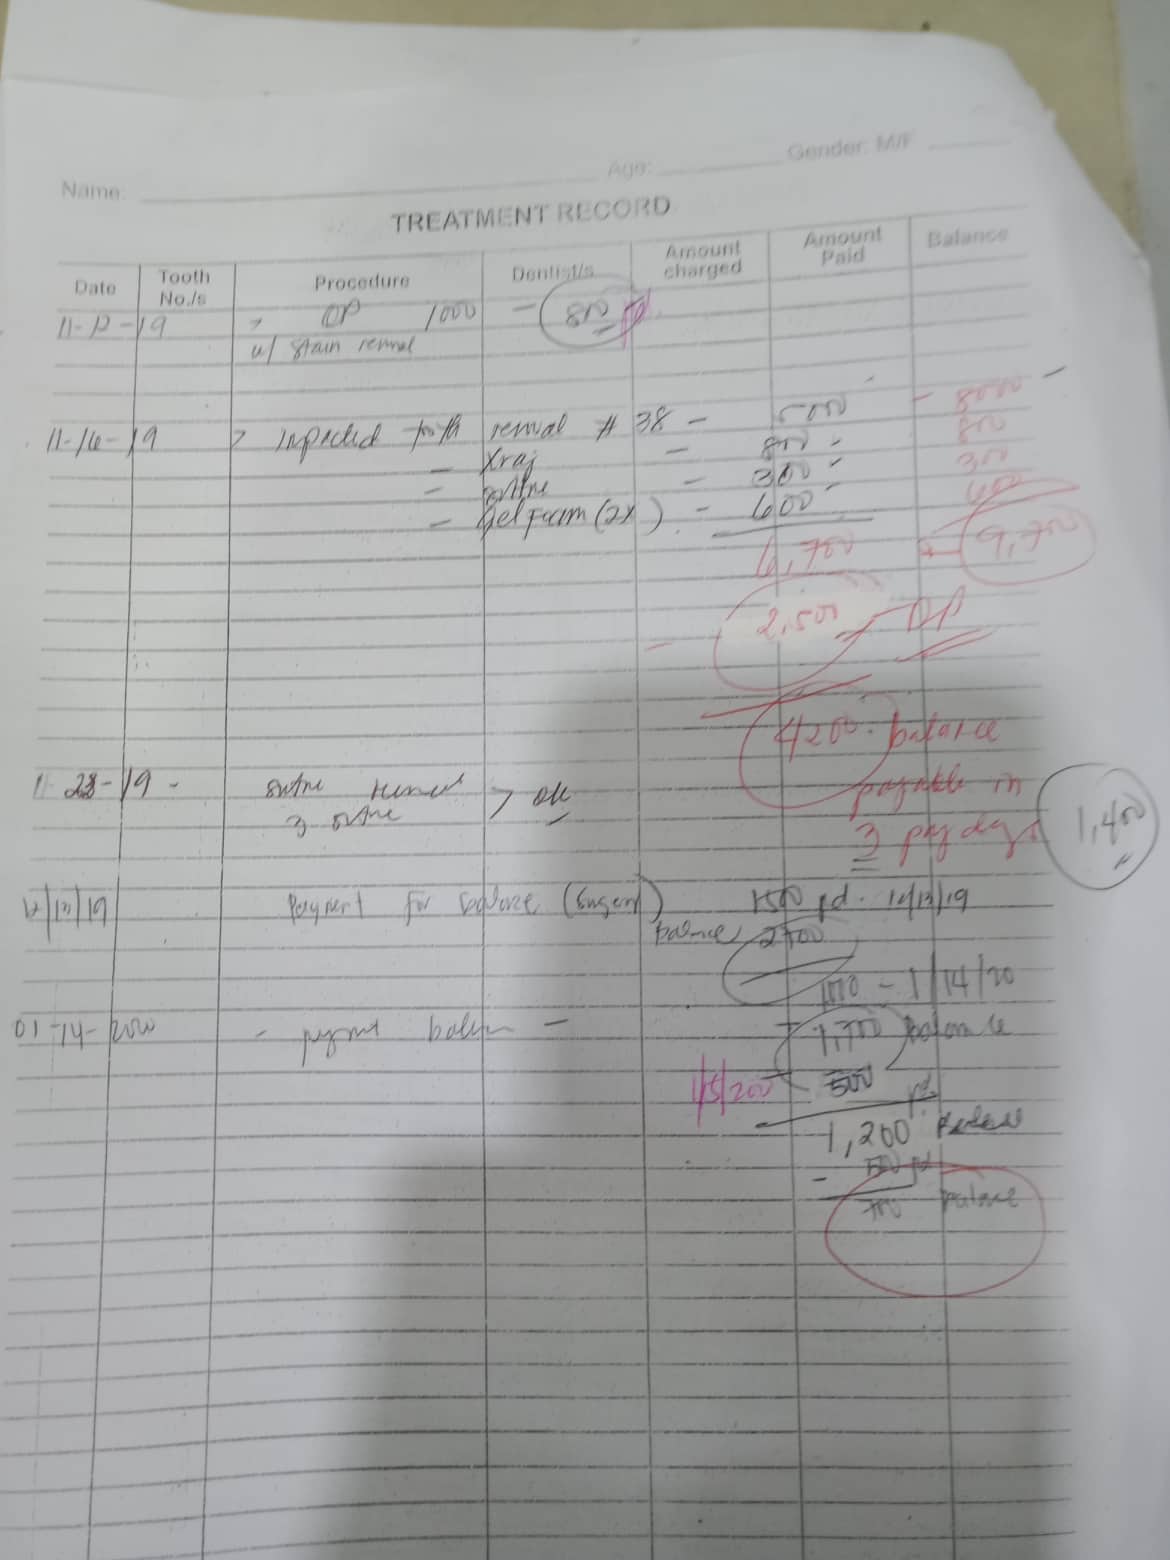 Name: Age: Gender: M/F
TREATMENT RECORD
Date Tooth No./s Procedure Dentist/s Amount charged Amount Paid Balance
11-12-19 > OP 1000 - 800
w/ stain
11-16-19 > removal # 38 - 5000 - 8000 -
- Xray - 800 - 800
- - 300 - 300
- Gel Foam (2x) - 600 600
6,700 9,700
- 2,500 - DP
4200. balance
payable in
3 pay days 1,400
11-28-19 - 3 > ok
12/13/19 Payment for balance 1500 pd. 12/13/19
balance 2700
1000 - 1/14/20
01-14-2020 - - 1,700 balance
500 pd
1,200
- 500 pd
700 balance